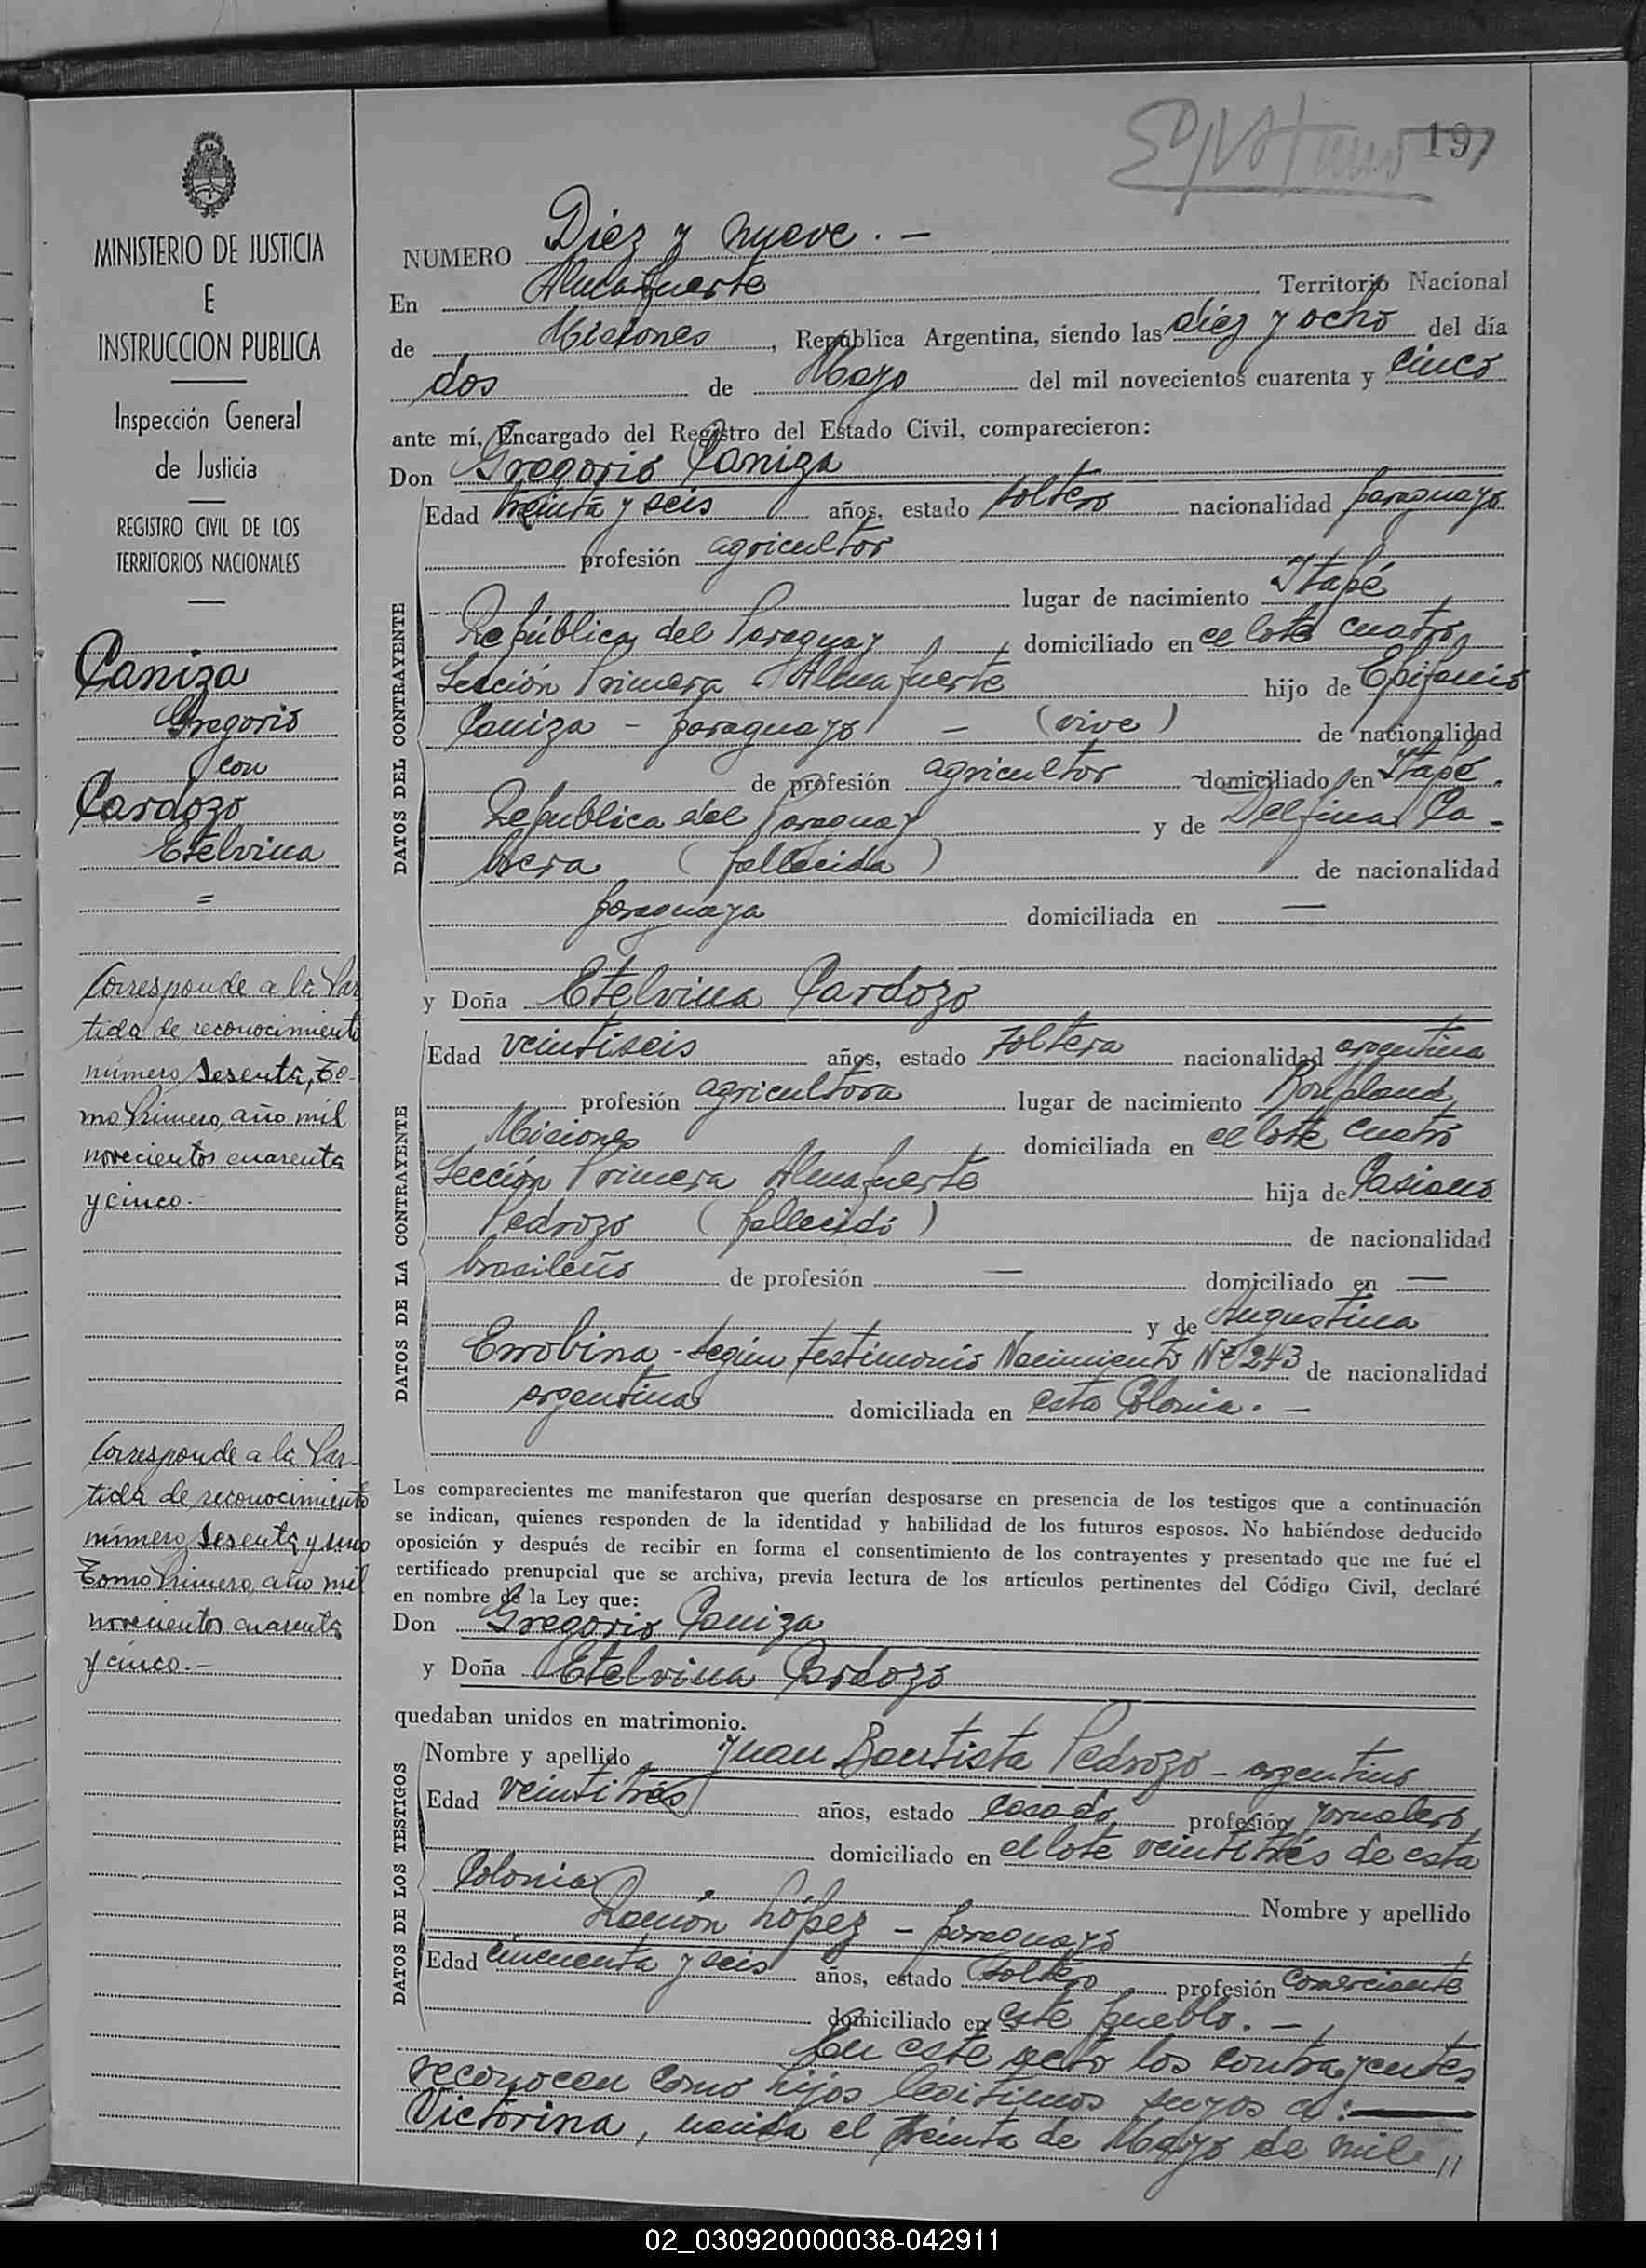 197
MINISTERIO DE JUSTICIA
E
INSTRUCCION PUBLICA
Inspección General
de Justicia
REGISTRO CIVIL DE LOS
TERRITORIOS NACIONALES
Caniza
Gregorio
con
Cardozo
Etelvina
=
Corresponde a la Par
tida de reconocimiento
número Sesenta, To-
mo Primero, año mil
novecientos cuarenta
y cinco.-
Corresponde a la Par-
tida de reconocimiento
número Sesenta y uno
Tomo Primero, año mil
novecientos cuarenta
y cinco.-
NUMERO Diez y nueve. -
En Almafuerte Territorio Nacional
de Misiones, República Argentina, siendo las diez y ocho del día
dos de Mayo del mil novecientos cuarenta y cinco
ante mí, Encargado del Registro del Estado Civil, comparecieron:
Don Gregorio Caniza
DATOS DEL CONTRAYENTE
Edad treinta y seis años, estado soltero nacionalidad paraguayo
profesión agricultor
lugar de nacimiento Itapé
República del Paraguay, domiciliado en el lote cuatro,
Sección Primera Almafuerte hijo de Epifanio
Caniza - paraguayo - (vive) de nacionalidad
de profesión agricultor domiciliado en Itapé.
Republica del Paraguay y de Delfina Ca-
brera (fallecida) de nacionalidad
paraguaya domiciliada en —
y Doña Etelvina Cardozo
DATOS DE LA CONTRAYENTE
Edad veintiseis años, estado soltera nacionalidad argentina
profesión agricultora lugar de nacimiento Bonpland,
Misiones domiciliada en el lote cuatro
Sección Primera Almafuerte hija de Casiano
Pedrozo (fallecido) de nacionalidad
brasileño de profesión — domiciliado en —
y de Augustina
Errobina - según testimonio Nacimiento Nº 243 de nacionalidad
argentina domiciliada en esta Colonia. -
Los comparecientes me manifestaron que querían desposarse en presencia de los testigos que a continuación
se indican, quienes responden de la identidad y habilidad de los futuros esposos. No habiéndose deducido
oposición y después de recibir en forma el consentimiento de los contrayentes y presentado que me fué el
certificado prenupcial que se archiva, previa lectura de los artículos pertinentes del Código Civil, declaré
en nombre de la Ley que:
Don Gregorio Caniza
y Doña Etelvina Cardozo
quedaban unidos en matrimonio.
DATOS DE LOS TESTIGOS
Nombre y apellido Juan Bautista Pedrozo - argentino
Edad veintitrés años, estado casado profesión jornalero
domiciliado en el lote veintitrés de esta
Colonia Nombre y apellido
Ramón López - paraguayo
Edad cincuenta y seis años, estado soltero profesión comerciante
domiciliado en este pueblo. -
En este acto los contrayentes
reconocen como hijos legitimos suyos a:
Victorina, nacida el treinta de Mayo de mil //
02_030920000038-042911